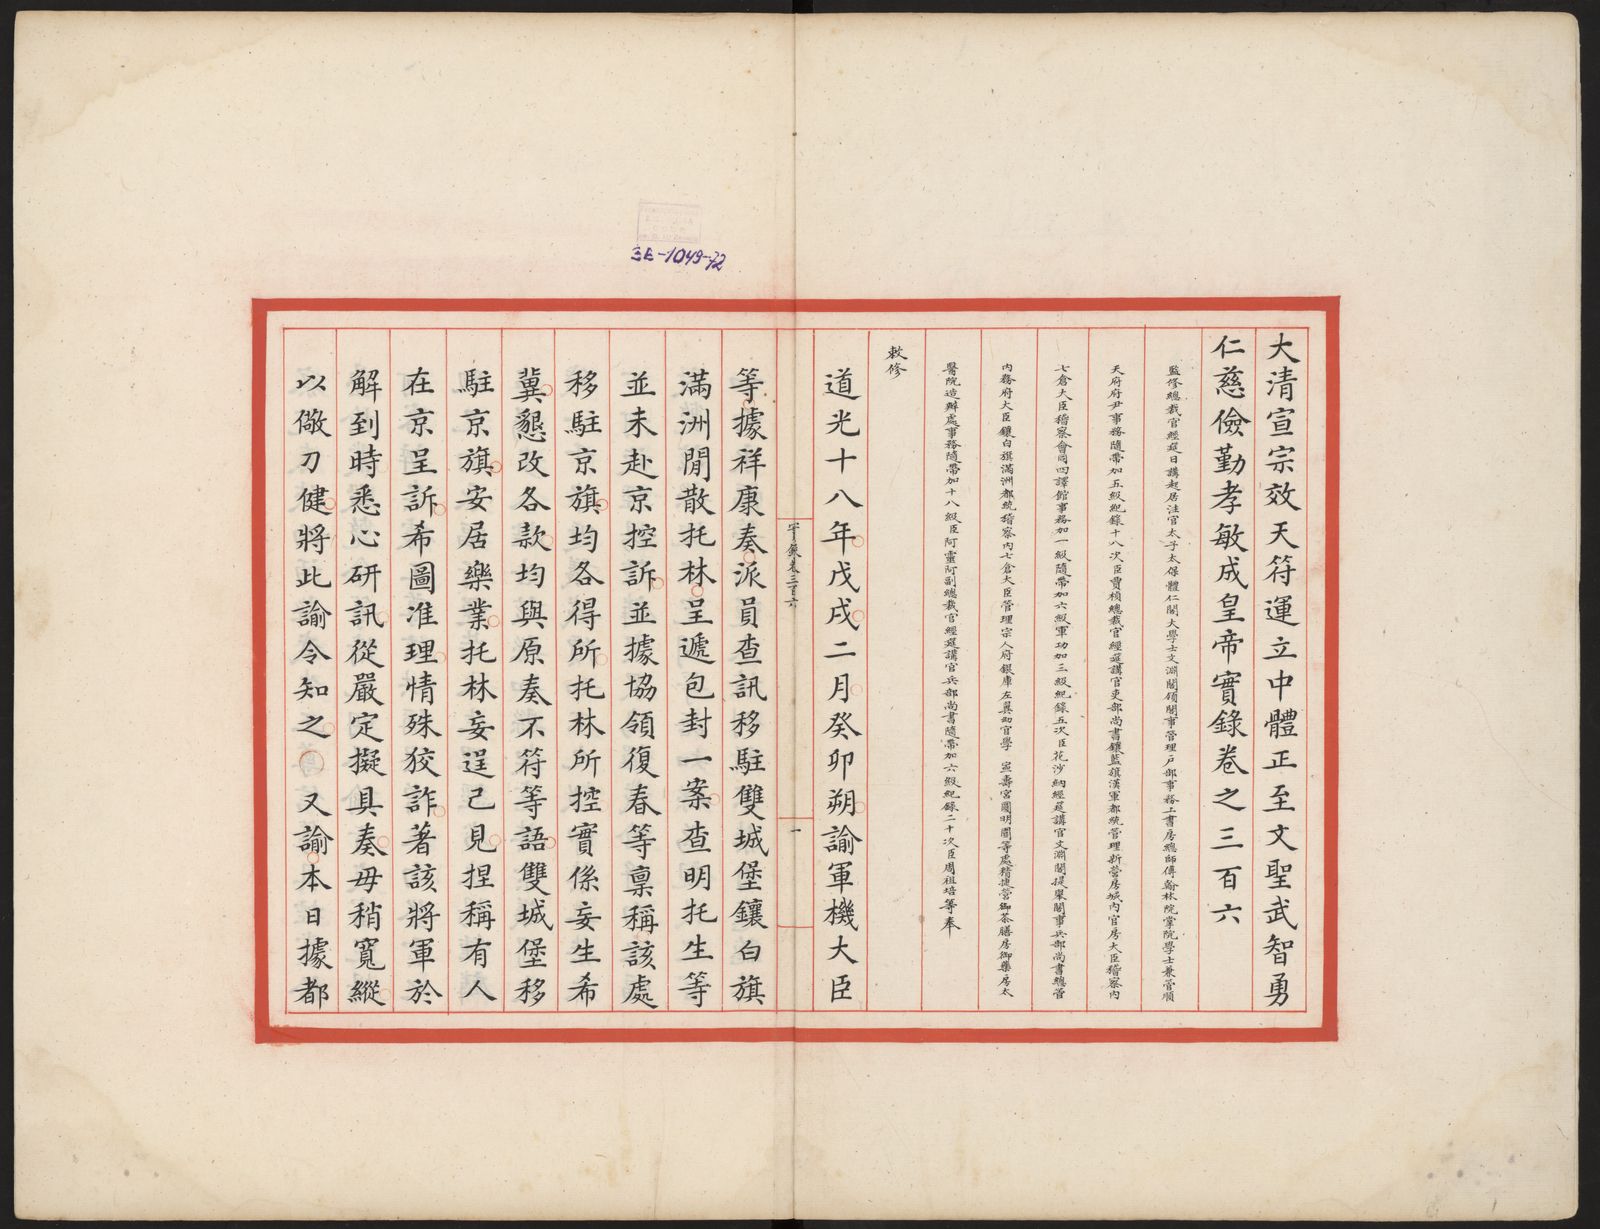 大清宣宗效天符運立中體正至文聖武智勇
仁慈儉勤孝敏成皇帝實錄卷之三百六
監修總裁官經筵日講起居注官太子太保體仁閣大學士文淵閣領閣事管理戶部事務上書房總師傅翰林院掌院學士兼管順
天府府尹事務隨帶加五級紀錄十八次臣賈楨總裁官經筵講官吏部尚書鑲藍旗漢軍都統管理新營房城內官房大臣稽察內
七倉大臣稽察會同四譯館事務加一級隨帶加六級軍功加三級紀錄五次臣花沙納經筵講官文淵閣提舉閣事兵部尚書總管
內務府大臣鑲白旗滿洲都統稽察內七倉大臣管理宗人府銀庫左翼幼官學 宣壽宮圓明園等處精捷營御茶膳房御藥房太
醫院造辦處事務隨帶加十八級臣阿靈阿副總裁官經筵講官兵部尚書隨帶加六級紀錄二十次臣周祖培等奉
敕修
道光十八年戊戌二月癸卯朔諭軍機大臣
實錄卷三百六
一
等據祥康奏派員查訊移駐雙城堡鑲白旗
滿洲閒散托林呈遞包封一案查明托生等
並未赴京控訴並據協領復春等稟稱該處
移駐京旗均各得所托林所控實係妄生希
冀懇改各款均與原奏不符等語雙城堡移
駐京旗安居樂業托林妄逞己見捏稱有人
在京呈訴希圖准理情殊狡詐著該將軍於
解到時悉心研訊從嚴定擬具奏毋稍寬縱
以儆刁健將此諭令知之○又諭本日據都
ЗЕ-1049-72